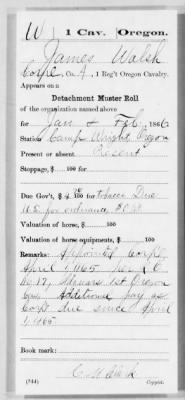 W | 1 Cav. | Oregon.
James Walsh
Corpl., Co. A, 1 Reg't Oregon Cavalry.
Appears on a
Detachment Muster Roll
of the organization named above
for Jan & Feb, 1866
Station Camp Wright, Oregon
Present or absent Present
Stoppage, $ 100 for
Due Gov't, $ 100 for tobacco Due
U.S. for ordnance
Valuation of horse, $ 100
Valuation of horse equipments, $ 100
Remarks: Appointed Corpl.
April 1, 1865
No 17, 1st Oregon
Cav. Additional pay as
Corpl due since April
1, 1865.
Book mark:
(744)
Copyist.